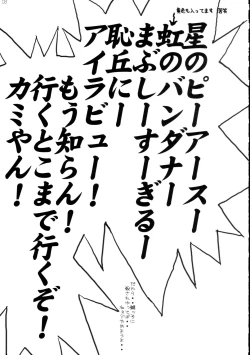 黄色も入ってます 苦笑
星のピーアースー
虹のバンダナー
まぶしーすーぎるー
恥丘にー
アイラビュー！
もう知らん！
行くとこまで行くぞ！
カミやん！